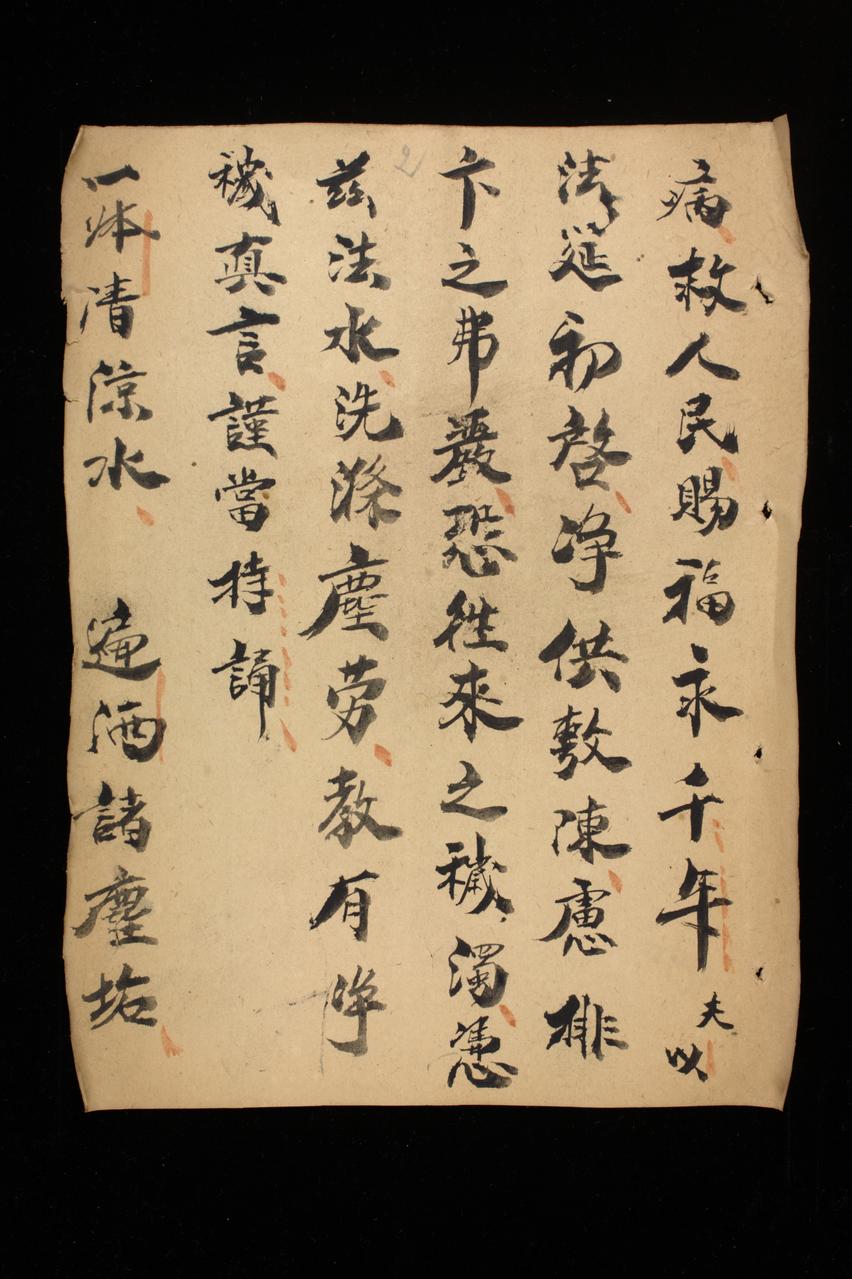 病救人民賜福永千年夫以
法筵初啓净供敷陳慮排
卞之弗嚴恐徃來之穢濁憑
兹法水洗滌塵劳教有净
穢真言謹當持誦
一体清凉水 遍洒諸塵垢
2